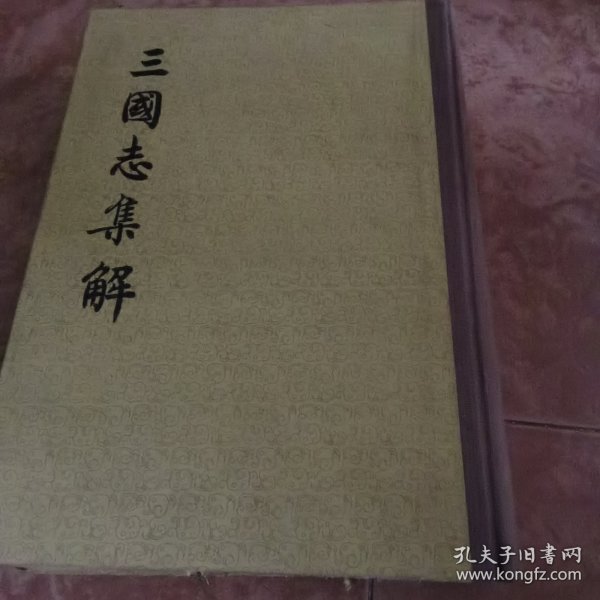 三國志集解
孔夫子旧書网
www.kongfz.com